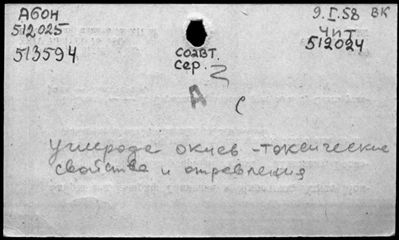 АБОН
512025
513594
СОАВТ.
сер.
А
9.I.58 ВК
ЧИТ
512024
углерода окись - токсические
свойства и отравления